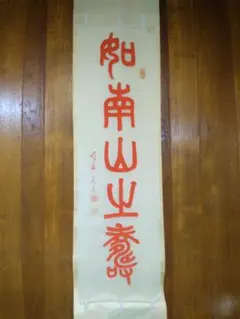 如南山之壽